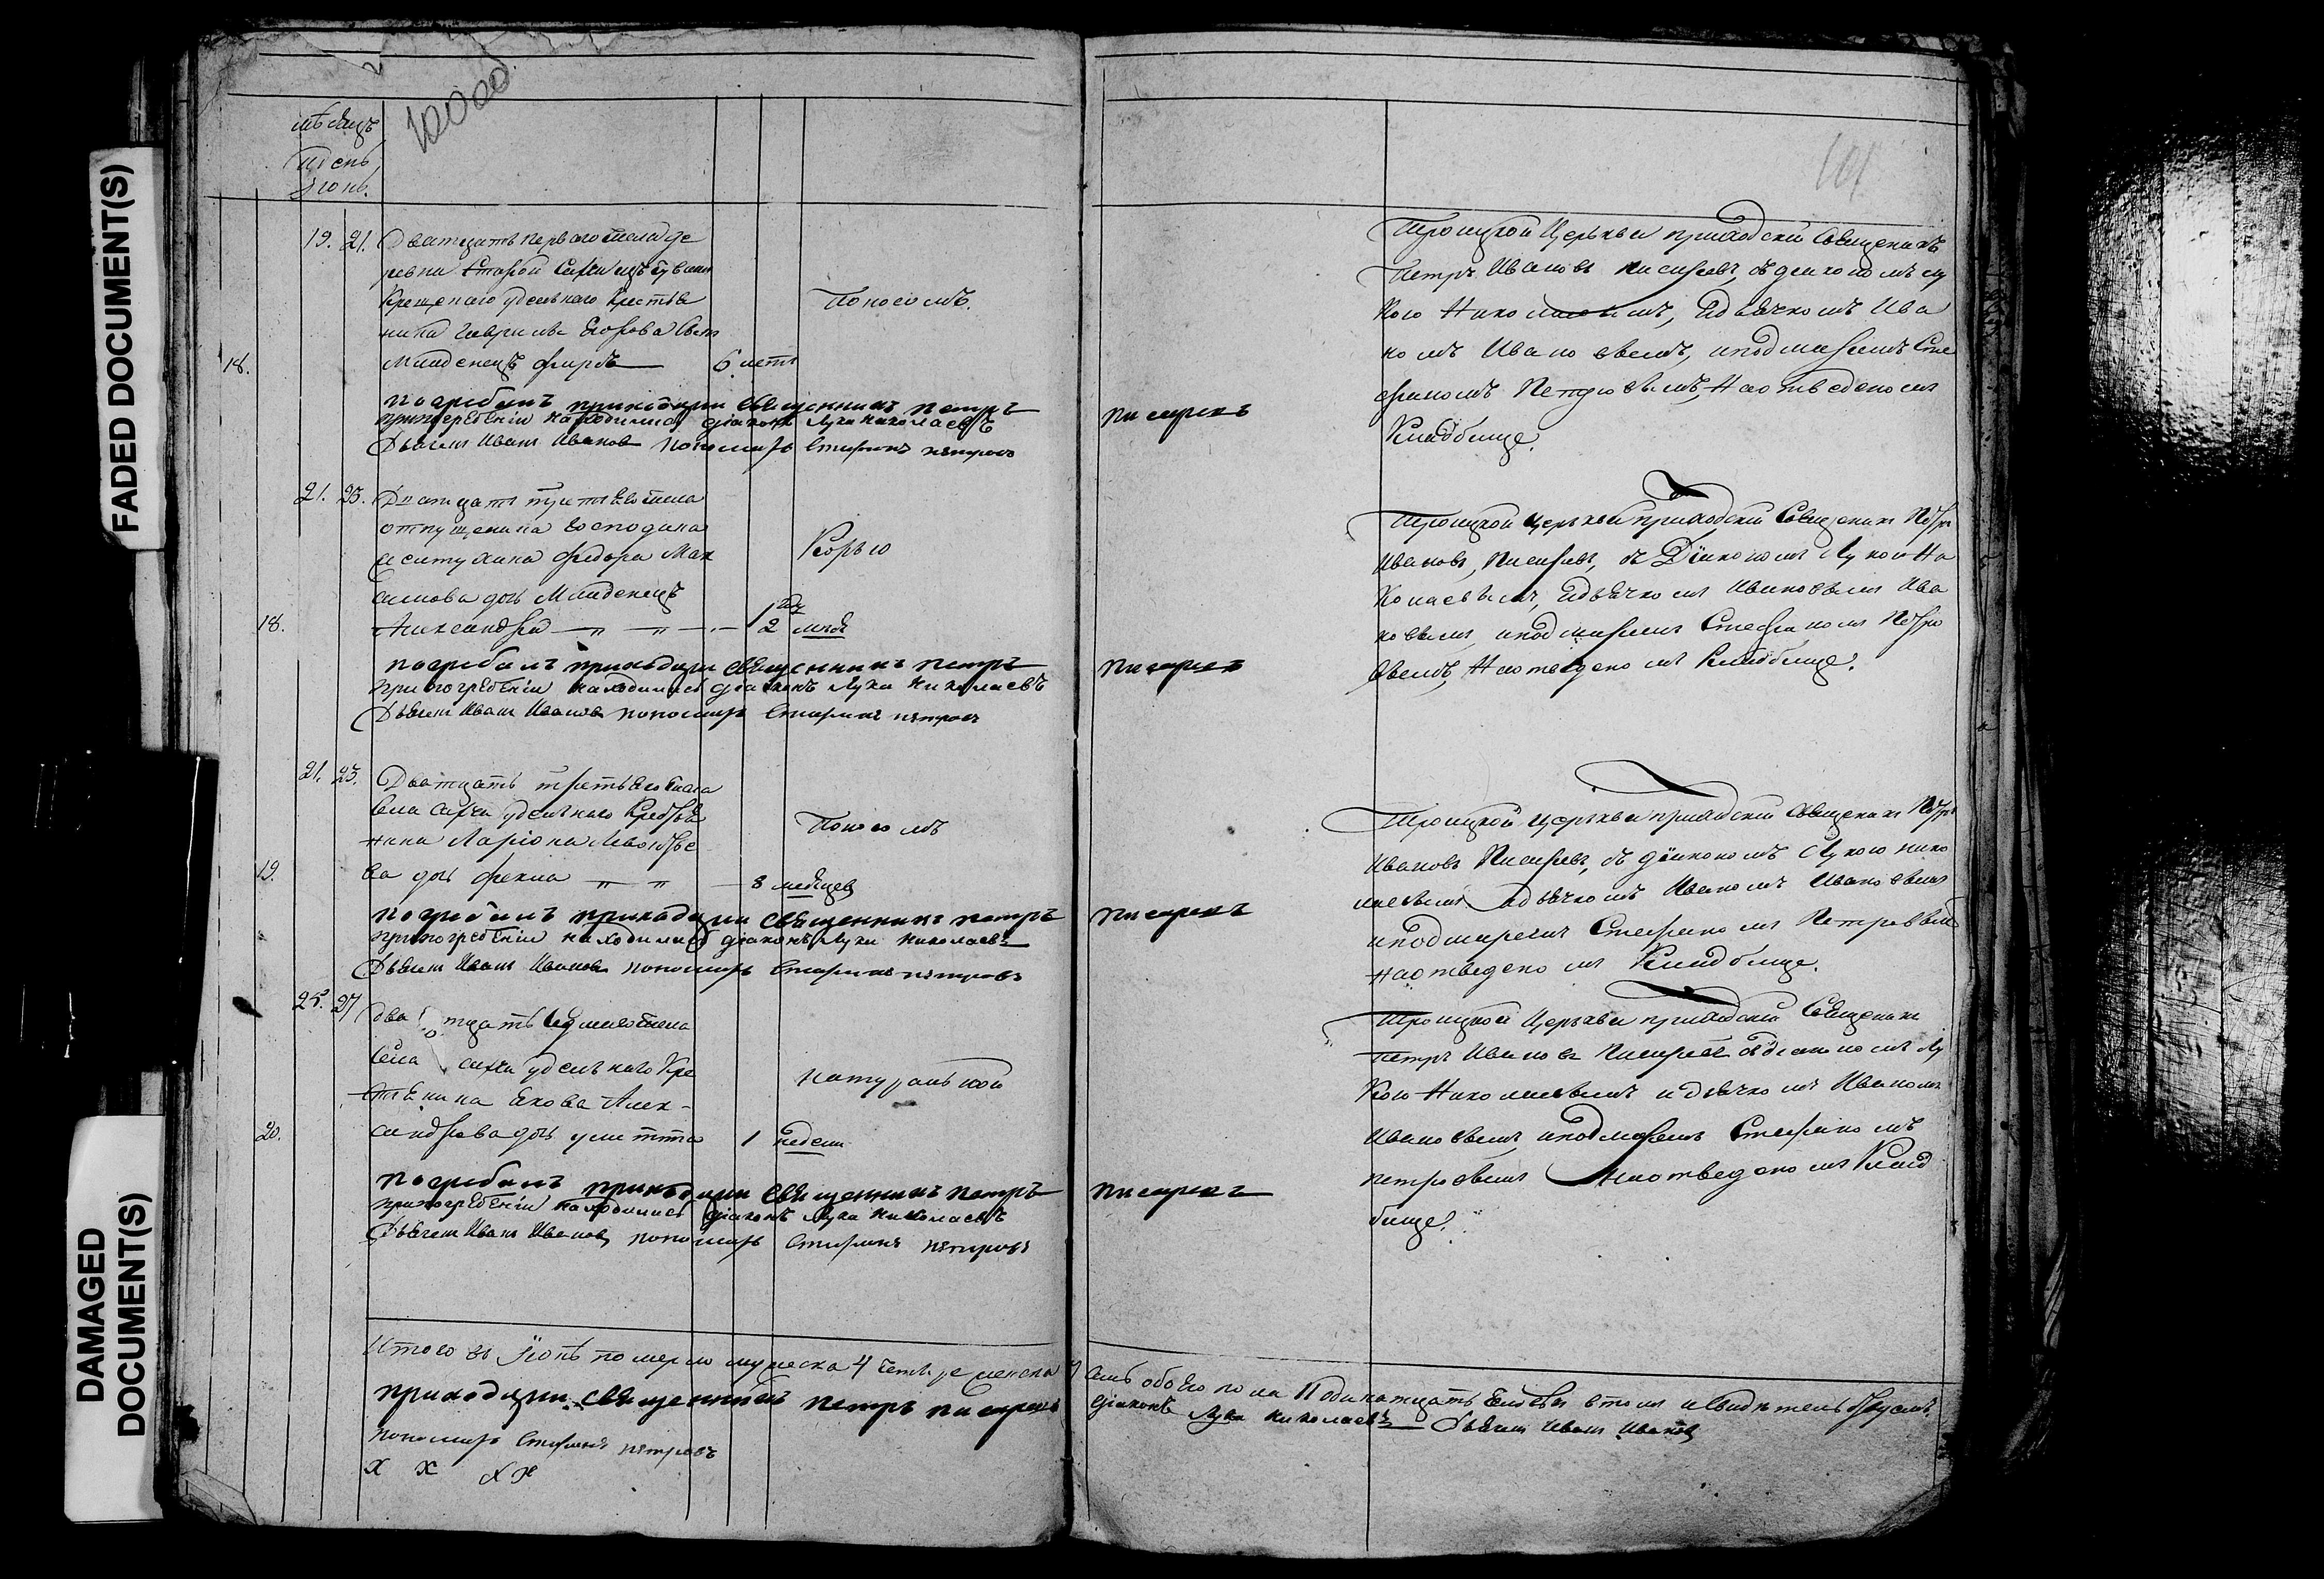 FADED DOCUMENT(S)
DAMAGED
DOCUMENT(S)
мѣсяцъ
и день
Іюнь.
101
19. 21. Дватцать перваго числа де
ревни Старой
Крещенаго удельнаго крестья
нина Гаврила Егорова сынъ
18. Младенецъ 6 летъ
Поносомъ.
погребалъ приходский священникъ петръ писаревъ
при погребеніи находились діаконъ Лука Николаевъ
Дьячекъ Иванъ Ивановъ пономарь Стефанъ петровъ
Троицкой Церькви приходский Священикъ
Петръ Ивановъ Писаревъ, съ диакономъ лу
кою Николаевымъ, и дьячкомъ Ива
номъ Ивановымъ, и подмаремъ Сте
фаномъ Петровымъ, На отведеномъ
Кладбище.
21. 23. Дватцать третьяго числа
отпущенина господина
Федора Мак
симова дочь Младенецъ
18. Александра 1 годъ
2 меся
Корью
погребалъ приходский священникъ петръ писаревъ
при погребеніи находились діаконъ Лука Николаевъ
Дьячекъ Иванъ Ивановъ пономарь Стефанъ петровъ
Троицкой церькви приходский Священикъ Петръ
Ивановъ, Писаревъ, съ Діакономъ Лукою Ни
колаевымъ, и дьячкомъ Ивановымъ Ива
новымъ, и подмаремъ Стефаномъ Петро
вымъ, На отведеномъ Кладбище.
21. 23. Дватцать третьяго числа
села удельнаго Крестья
нина Ларіона
19. ва дочь Фекла 8 месяцев
Поносомъ
погребалъ приходский священникъ петръ писаревъ
при погребеніи находились діаконъ Лука Николаевъ
Дьячекъ Иванъ Ивановъ пономарь Стефанъ петровъ
Троицкой церькви приходский Священикъ Петръ
Ивановъ Писаревъ, съ діакономъ Лукою нико
лаевымъ и дьячкомъ Иваномъ Ивановымъ
и подмаремъ Стефаномъ Петровымъ
на отведеномъ Кладбище.
25. 27 Дватцать седмаго числа
села удельнаго Кре
стьянина Якова Алек-
20. сандрова дочь 1 недели
натуральной
погребалъ приходский священникъ петръ писаревъ
при погребеніи находились діаконъ Лука Николаевъ
Дьячекъ Иванъ Ивановъ пономарь Стефанъ петровъ
Троицкой Церькви приходский Священикъ
Петръ Ивановъ Писаревъ съ диакономъ Лу
кою Николаевымъ и дьячкомъ Иваномъ
Ивановымъ, и подмаремъ Стефаномъ
петровымъ На отведеномъ Клад
бище.
Итого въ Іюнѣ померло мужеска 4 женска 7 семь обоего пола 11 одинатцать
приходский священникъ петръ писаревъ діаконъ Лука Николаевъ Дьячекъ Иванъ Ивановъ
пономарь Стефанъ петровъ